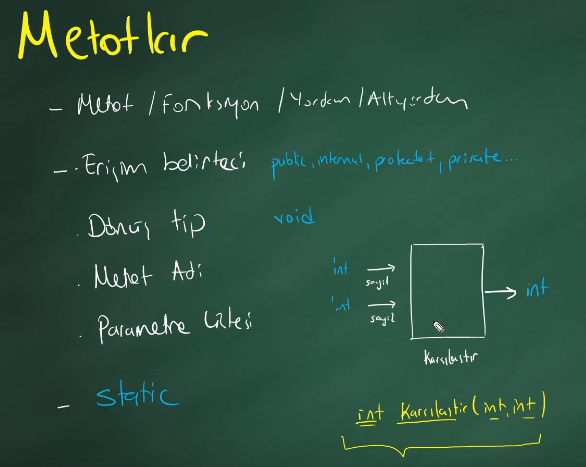 Metotlar
- Metot / Fonksiyon / Yordam / Altyordam
- . Erişim belirteci public, internal, protectet, private...
. Dönüş tip void
. Metot Adi
. Parametre Listesi
- static
int sayı1
int sayı2
int
Karsılastır
int Karsılastır(int, int)